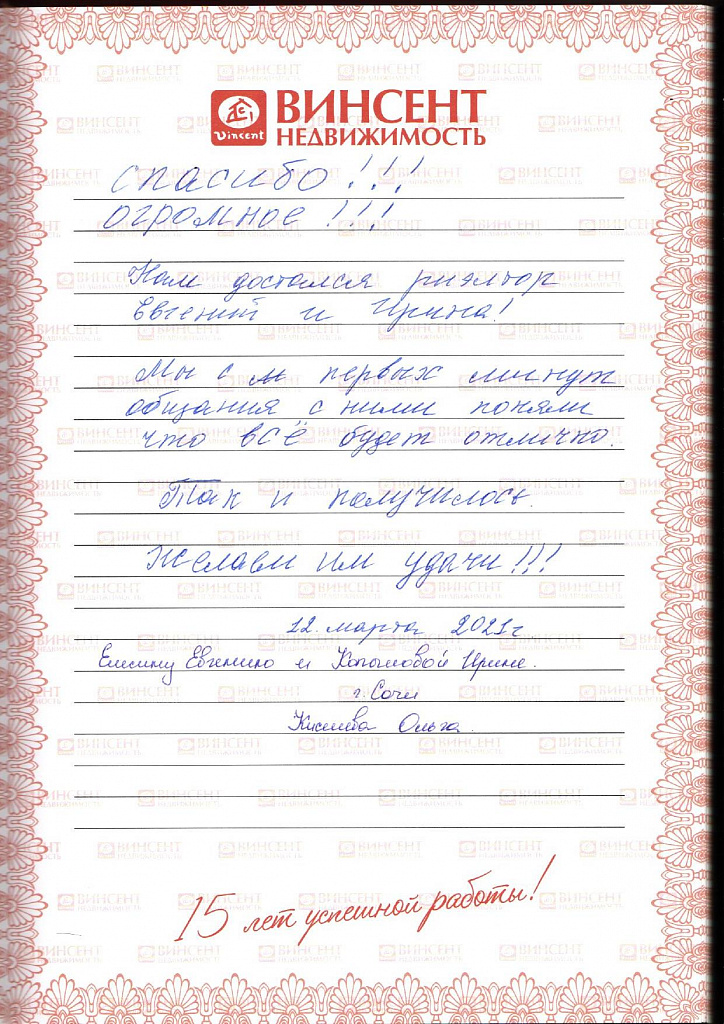 ВИНСЕНТ
НЕДВИЖИМОСТЬ
Vincent
спасибо!!!
огромное!!!
Нам достался риэлтор
Евгений и Ирина!
Мы с м первых минут
общания с ними поняли
что всё будет отлично.
Так и получилось.
Желаем им удачи!!!
12. марта 2021г
Евгению и Копыловой Ирине.
г. Сочи
Киселева Ольга.
15 лет успешной работы!